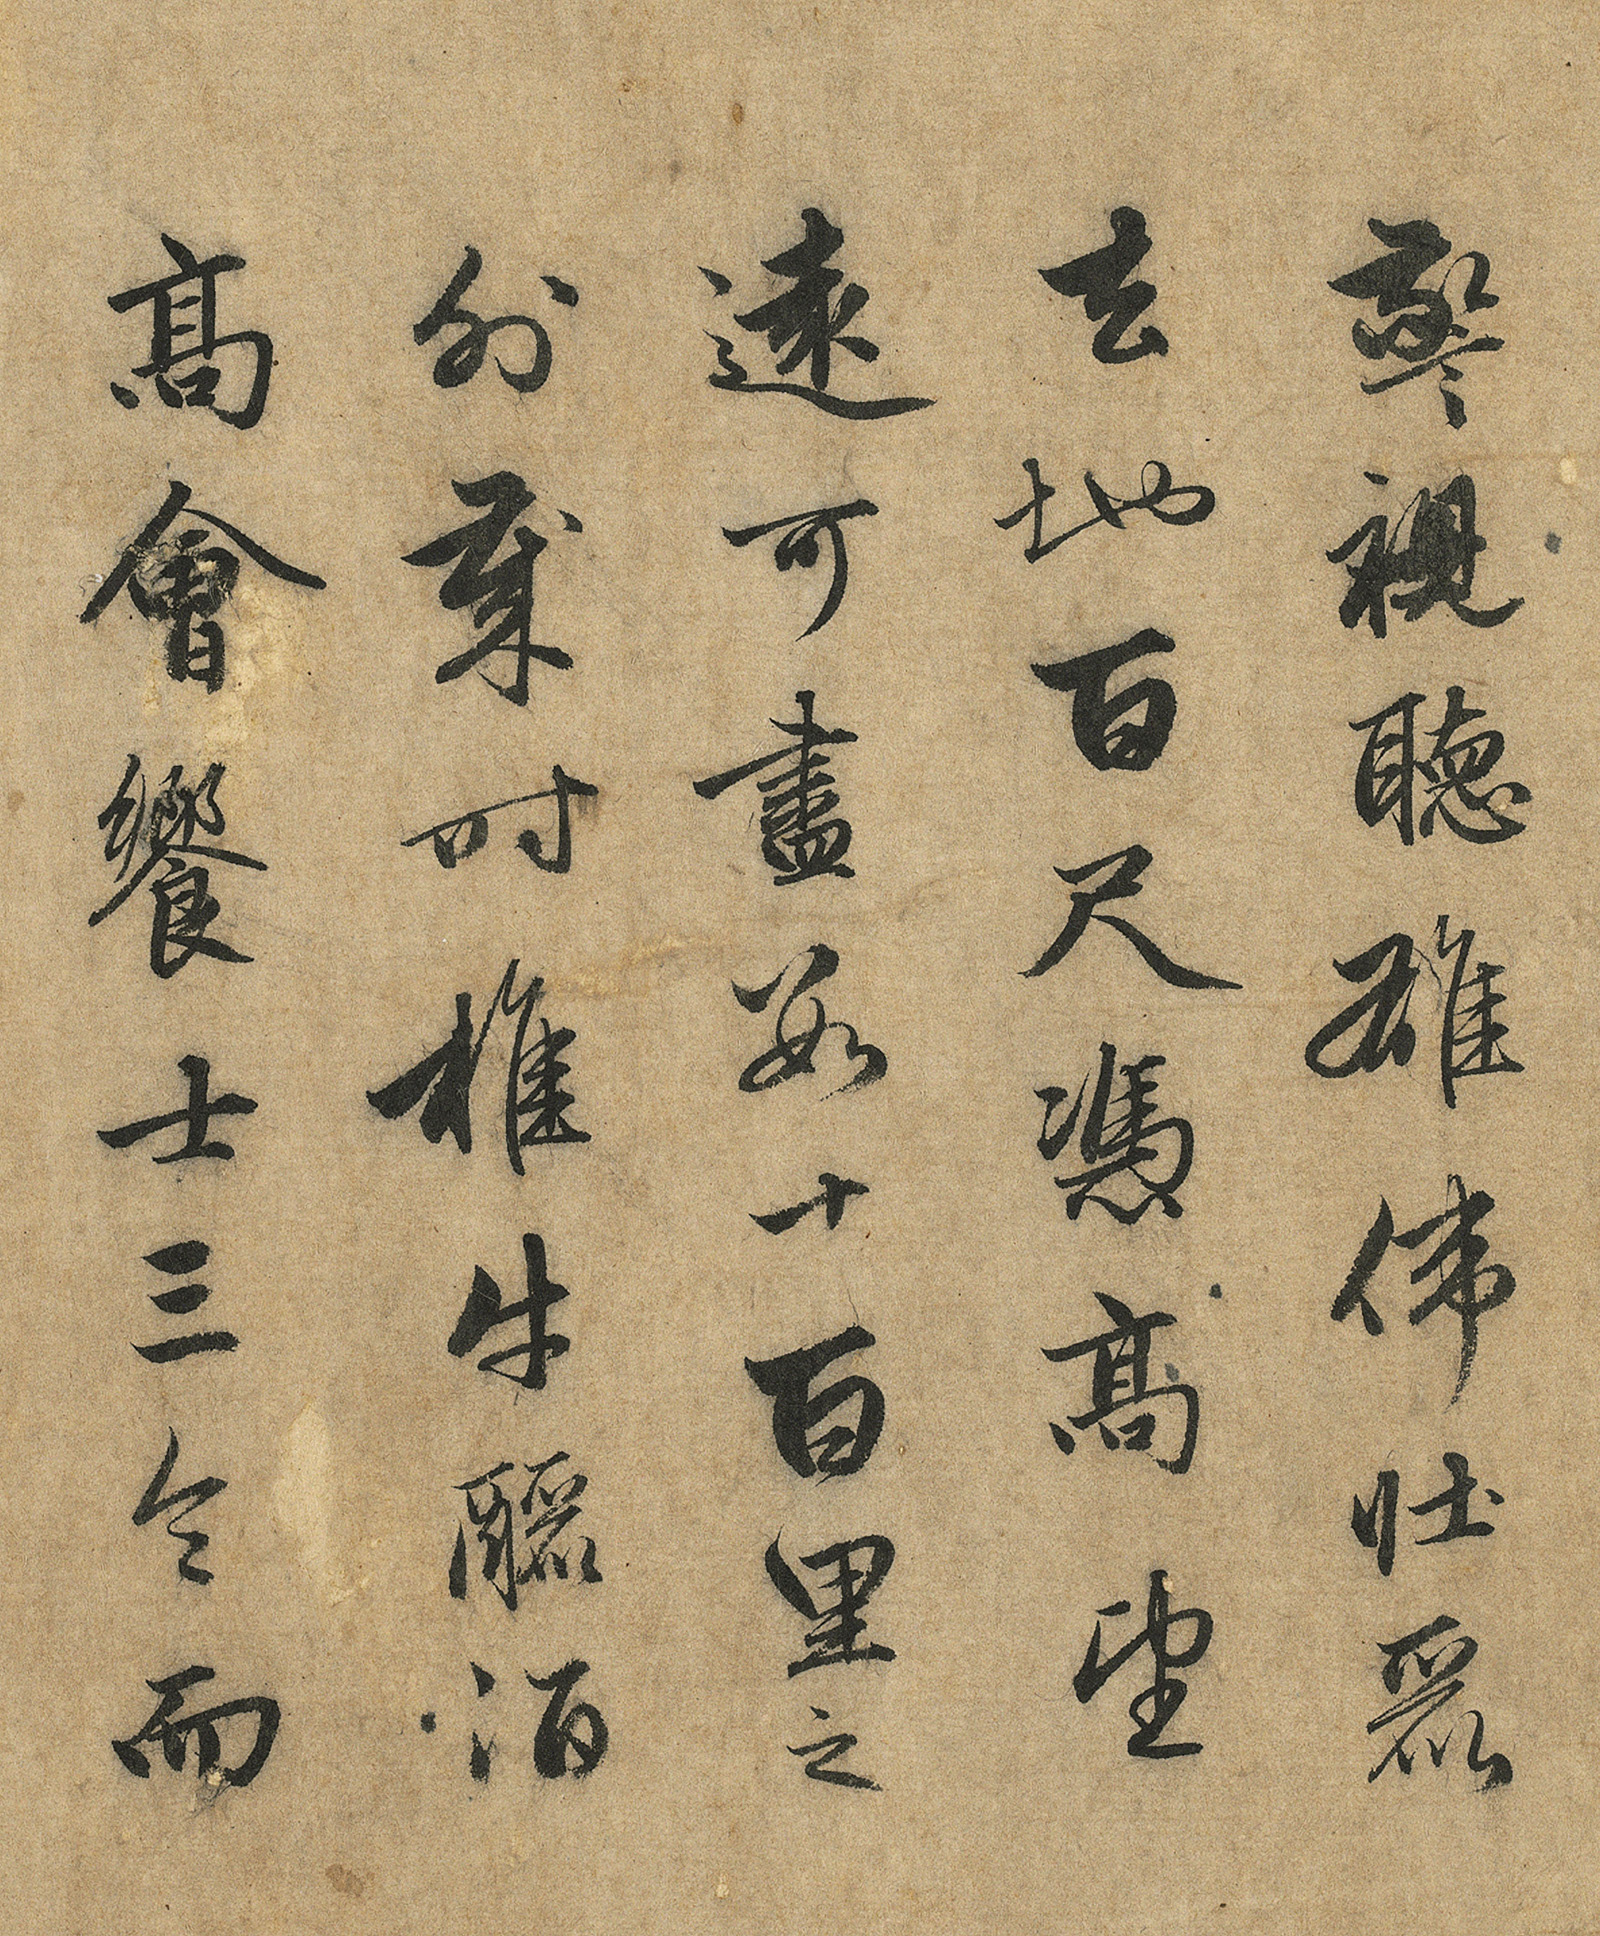 驚視聽雄偉壯麗
去地百尺憑高望
遠可盡數十百里之
外歲時椎牛釃酒
高會饗士三令而